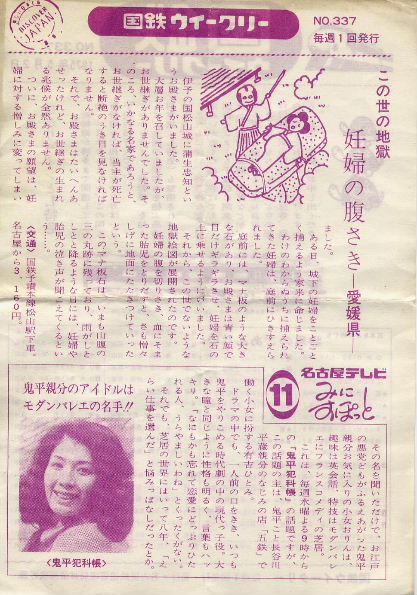 DISCOVER
JAPAN
国鉄ウイークリー
NO.337
毎週1回発行
この世の地獄
妊婦の腹さき―愛媛県―
伊予の国松山城に蒲生忠知とい
うお殿さまがいました。
大層お年を召していましたが、
お世継ぎがありませんでした。そ
のころ、いかなる名家であろうと、
お世継ぎがなければ、当主が死亡
すると断絶のうき目を見なければ
なりません。
それで、お殿さまはたいへんあ
せったけれど、お世継ぎの生まれ
る兆候が全然ありません。
ついに、お殿さまの願望は、妊
婦に対する憎しみに変ってしまい
ました。
ある日、城下の妊婦をことごと
く捕えるよう家来に命じました。
わけのわからぬうちに捕えられ
てきた妊婦は、庭前にひきすえら
れました。
庭前には、マナ板のような大き
な石があり、お殿さまは青い顔で
目だけギラギラさせ、妊婦を石の
上に乗せるよういいました。
それから、この世でないような
地獄絵図が展開されたのです。
妊婦の腹を切りさき、血にそま
った胎児をとりだすと、さも憎々
しげに地面にたたきつけていった
という。
このマナ板石は、いまも山腹の
三の丸跡に残っており、雨がしと
しとと降るような日には、妊婦や
胎児の泣き声が聞こえてくるとい
う……。
〈交通〉国鉄予讃本線松山駅下車。
名古屋から3,160円。
名古屋テレビ
11
みに
すぽっと
鬼平親分のアイドルは
モダンバレエの名手!!
〈鬼平犯科帳〉
その名を聞いただけで、お江戸
の悪党どもがふるえあがった鬼平
親分お気に入りの小女おりんは、
趣味は英会話、特技はモダンバレ
エにフランスコメディの芝居。
これは、毎週水曜よる9時から
の、「鬼平犯科帳」の話題ですが、
この話題の主は、鬼平こと長谷川
平蔵親分のなじみの店「五鉄」で
働く小女に扮する有吉ひとみ。
ドラマの中でも、一人前の口をきき、いつも
鬼平をやりこめる時代劇の中の現代っ子役。大
きな瞳と同じように性格も明るく、言葉もハッ
キリ。「なにもかも忘れて恋愛にどっぷりひた
れる人、うらやましいわね」とくったくがない。
それでも、芝居の世界にはいって八年、「え
らい仕事を選んだ」と悩みっぱなしだったとか。